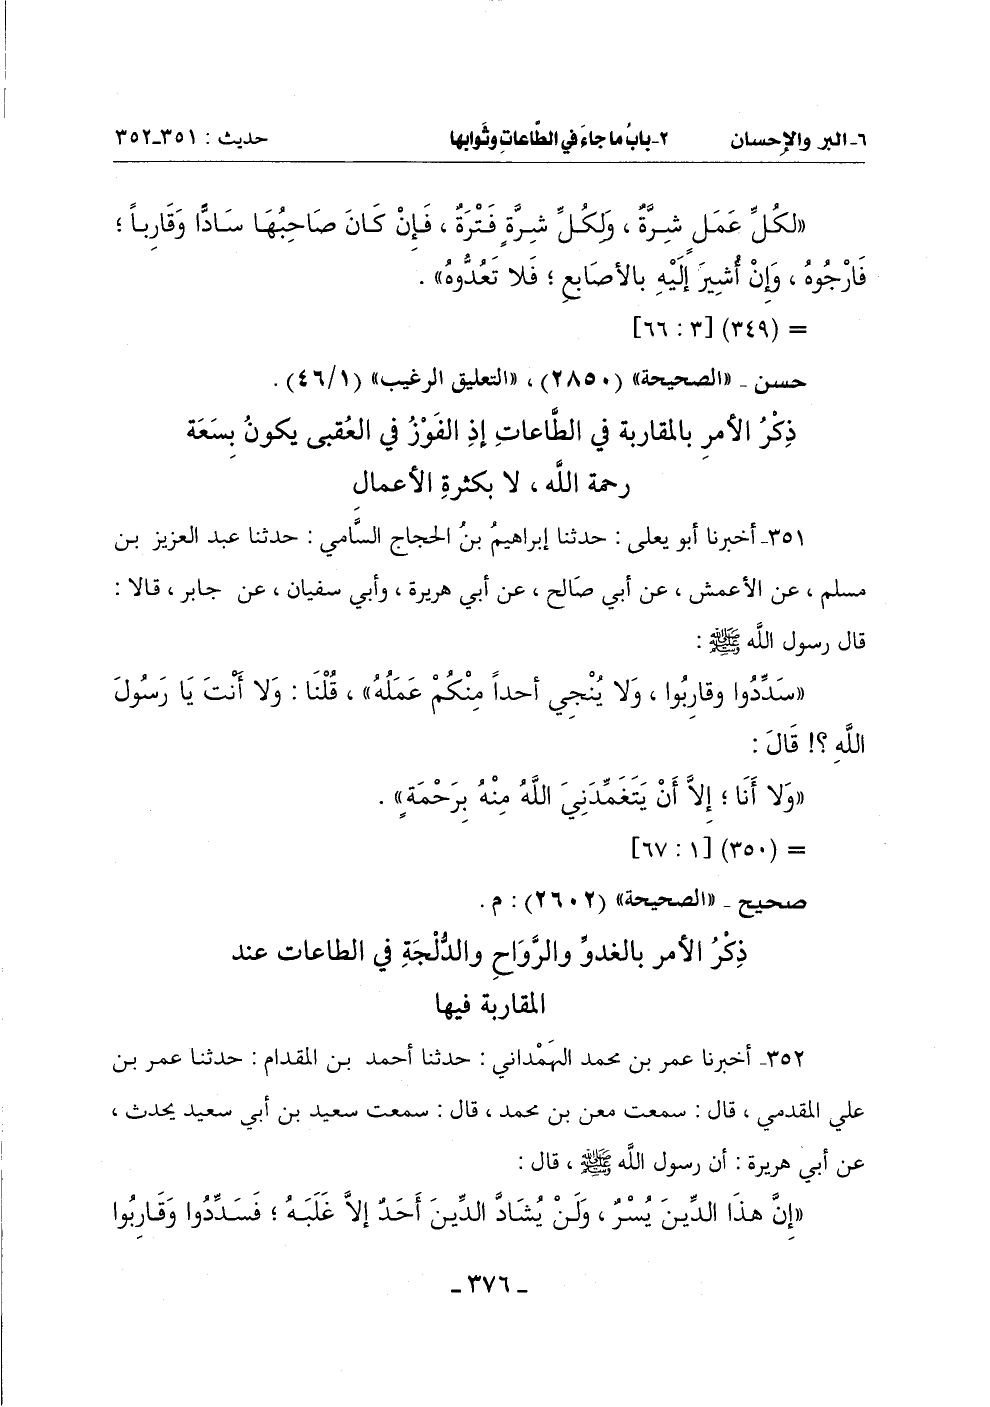 ٦ـ البر والإحسان ٢ـ بابُ ما جاءَ في الطّاعاتِ وثَوابها حديث : ٣٥١ـ٣٥٢
«لكُلِّ عَمَلٍ شِرَّةٌ ، وَلِكُلِّ شِرَّةٍ فَتْرَةٌ ، فَإِنْ كَانَ صَاحِبُهَا سَادًّا وَقَارِباً ؛
فَارْجُوهُ ، وَإِنْ أُشِيرَ إِلَيْهِ بالأصَابعِ ؛ فَلا تَعُدُّوهُ» .
= (٣٤٩) [٣ : ٦٦]
حسن ـ «الصحيحة» (٢٨٥٠) ، «التعليق الرغيب» (٤٦/١) .
ذِكْرُ الأمرِ بالمقاربة في الطَّاعاتِ إذِ الفَوْزُ في العُقبى يكونُ بِسَعَة
رحمة الله ، لا بكثرةِ الأعمالِ
٣٥١ـ أخبرنا أبو يعلى : حدثنا إبراهيمُ بنُ الحجاج السَّامي : حدثنا عبد العزيز بن
مسلم ، عن الأعمش ، عن أبي صَالح ، عن أبي هريرة ، وأبي سفيان ، عن جابر ، قالا :
قال رسول اللَّه ﷺ :
«سَدِّدُوا وقارِبُوا ، وَلا يُنْجِي أحداً مِنْكُمْ عَمَلُهُ» ، قُلْنَا : وَلا أَنْتَ يَا رَسُولَ
اللَّهِ ؟! قَالَ :
«وَلا أَنَا ؛ إِلاَّ أَنْ يَتَغَمِّدَنِيَ اللَّهُ مِنْهُ بِرَحْمَةٍ» .
= (٣٥٠) [١ : ٦٧]
صحيح ـ «الصحيحة» (٢٦٠٢) : م .
ذِكْرُ الأمر بالغدوِّ والرَّوَاحِ والدُّلْجَةِ في الطاعات عند
المقاربة فيها
٣٥٢ـ أخبرنا عمر بن محمد الهَمْداني : حدثنا أحمد بن المقدام : حدثنا عمر بن
علي المقدمي ، قال : سمعت معن بن محمد ، قال : سمعت سعيد بن أبي سعيد يحدث ،
عن أبي هريرة : أن رسول اللَّه ﷺ ، قال :
«إِنَّ هذَا الدِّينَ يُسْرٌ ، وَلَنْ يُشَادَّ الدِّينَ أَحَدٌ إلاَّ غَلَبَهُ ؛ فَسَدِّدُوا وَقَارِبُوا
ـ ٣٧٦ ـ